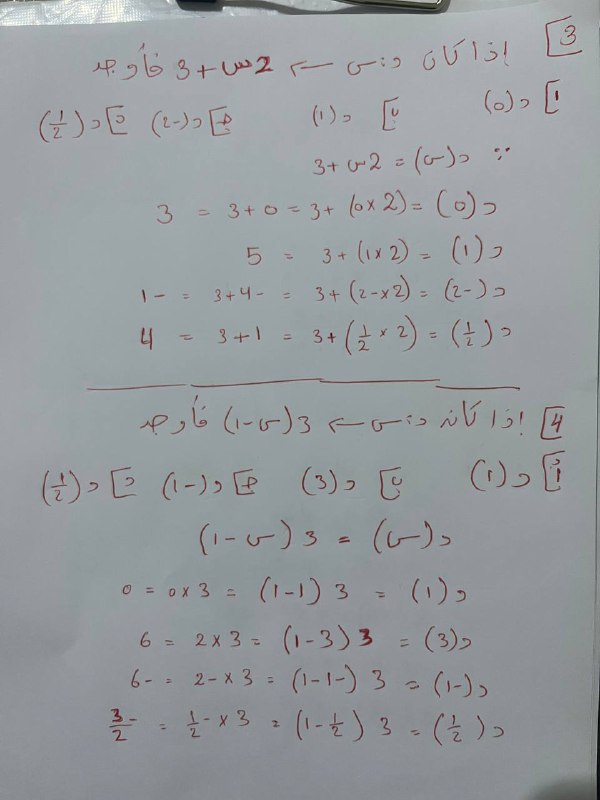 3] إذا كان د: س ← 2س + 3 فأوجد
أ] د(0) ب] د(1) ج] د(-2) د] د(1/2)
∵ د(س) = 2س + 3
د(0) = (2 × 0) + 3 = 0 + 3 = 3
د(1) = (2 × 1) + 3 = 5
د(-2) = (2 × -2) + 3 = -4 + 3 = -1
د(1/2) = (2 × 1/2) + 3 = 1 + 3 = 4
4] إذا كانه د: س ← 3(س - 1) فأوجد
أ] د(1) ب] د(3) ج] د(-1) د] د(1/2)
د(س) = 3(س - 1)
د(1) = 3(1 - 1) = 3 × 0 = 0
د(3) = 3(3 - 1) = 3 × 2 = 6
د(-1) = 3(-1 - 1) = 3 × -2 = -6
د(1/2) = 3(1/2 - 1) = 3 × -1/2 = -3/2